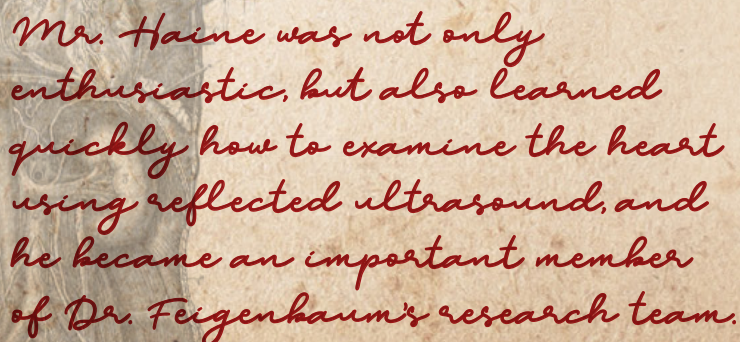 Mr. Haine was not only
enthusiastic, but also learned
quickly how to examine the heart
using reflected ultrasound, and
he became an important member
of Dr. Feigenbaum's research team.